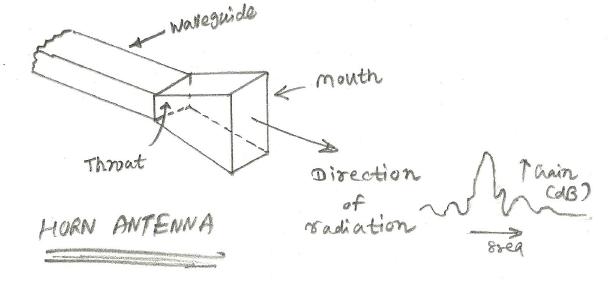 Waveguide
Mouth
Throat
Direction
of
radiation
↑ Gain
(dB)
freq
HORN ANTENNA